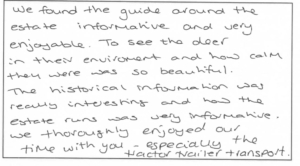 We found the guide around the
estate informative and very
enjoyable. To see the deer
in their enviroment and how calm
they were was so beautiful.
The historical information was
really interesting and how the
estate runs was very informative.
We thoroughly enjoyed our
time with you - especially the
tractor trailer transport.